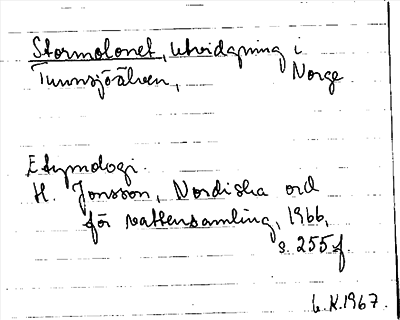 Stormolonet, utvidgning i
Tunnsjöälven, Norge
Etymologi.
H. Jonsson, Nordiska ord
för vattensamling, 1966,
s. 255 f.
L.K. 1967.